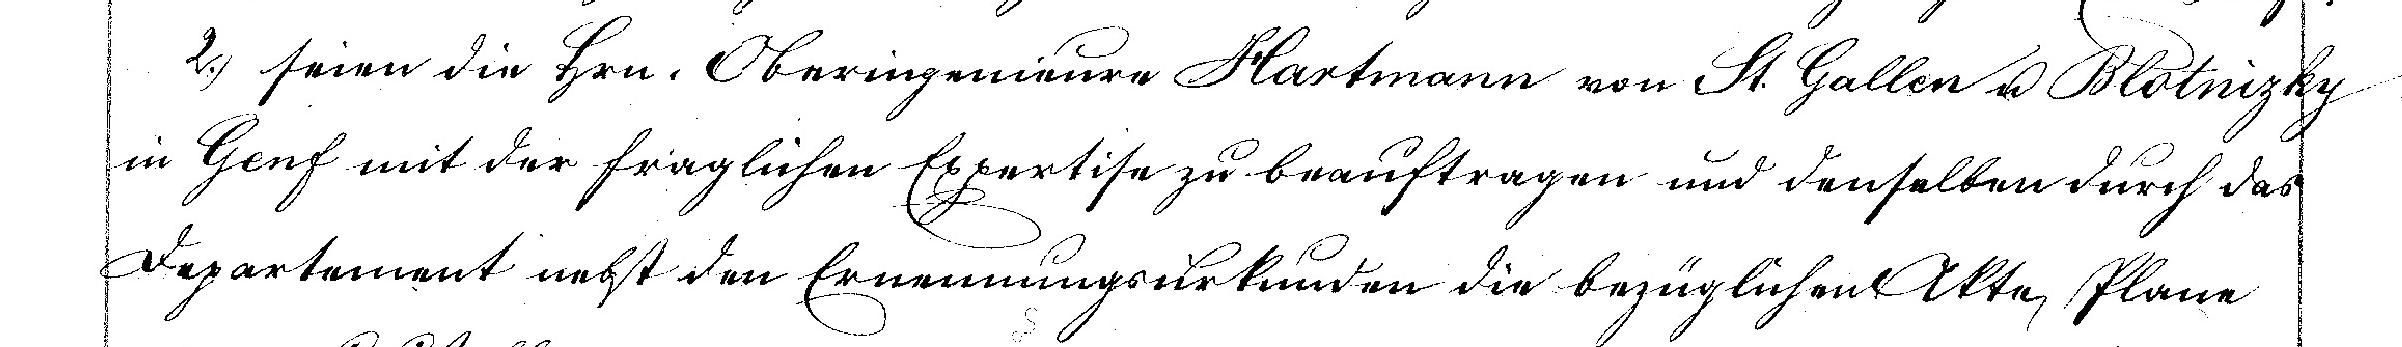 2.) seien die Hrn. Oberingenieure Hartmann von St. Gallen u Blotnizky
in Genf mit der fraglichen Expertise zu beauftragen und denselben durch das
Departement nebst den Ernennungsurkunden die bezüglichen Akte, Plane